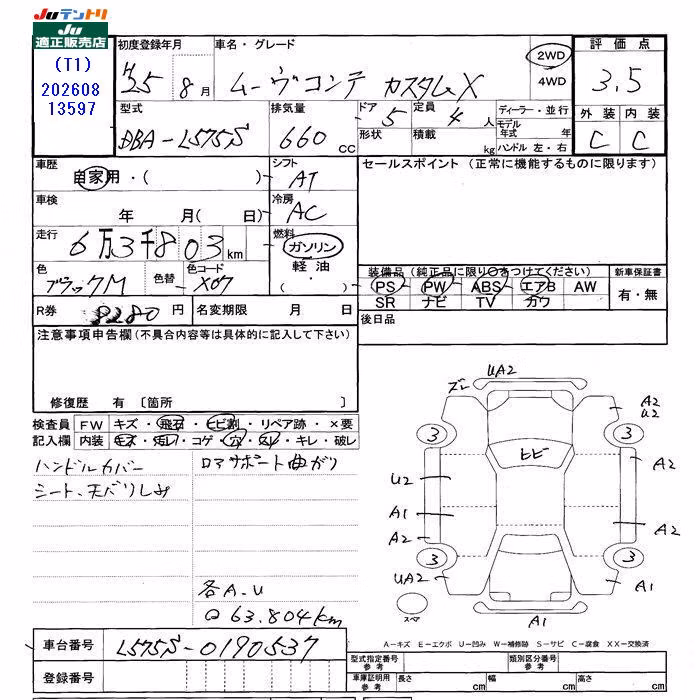 Juテントリ
Ju
適正販売店
(T1)
202608
13597
初度登録年月
H25 8月
車名・グレード
ムーヴコンテ カスタムX
2WD
4WD
評価点
3.5
外装 内装
C C
型式
DBA-L575S
排気量
660 cc
ドア 5
形状
定員 4人
積載 kg
ディーラー・並行
モデル年式 年
ハンドル 左・右
車歴
自家用・( )
シフト
AT
セールスポイント (正常に機能するものに限ります)
車検
年 月( 日)
冷房
AC
走行
6万3千803km
燃料
ガソリン
軽油
( )
色
ブラックM
色替
色コード
X07
装備品(純正品に限り○をつけてください)
PS PW ABS エアB AW
SR ナビ TV カワ
新車保証書
有・無
R券 8280円
名変期限 月 日
後日品
注意事項申告欄(不具合内容等は具体的に記入して下さい)
修復歴 有 〔箇所
検査員
記入欄
FW キズ・飛石・ヒビ割・リペア跡・×要
内装 キズ・汚レ・コゲ・穴・スレ・キレ・破レ
ハンドルカバー
シート、天バリしみ
ロアサポート曲がり
各A.U
63.804km
ズレ UA2
A2
U2
3 3
ヒビ
U2 A2
A1
A2 A2
3 3
UA2 A1
スペア A1
A-キズ E-エクボ U-凹み W-補修跡 S-サビ C-腐食 XX-交換済
車台番号 L575S-0190537
登録番号
型式指定番号
参考
類別区分番号
参考
車庫証明用
参考
長さ cm 幅 cm 高さ cm